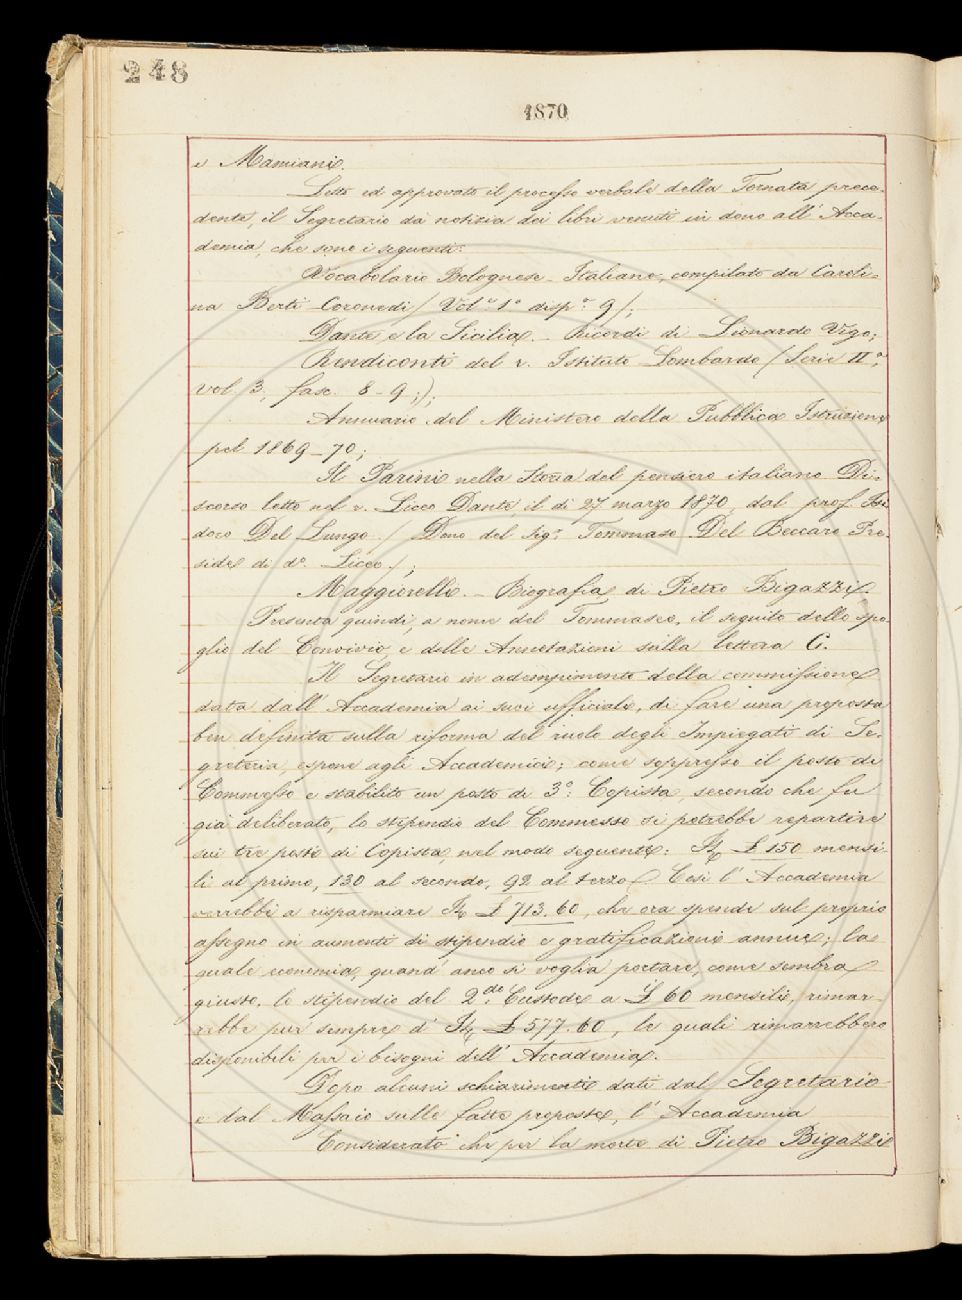 248
1870
e Mamiani.
Letto ed approvato il processo verbale della Tornata prece-
dente, il Segretario dà notizia dei libri venuti in dono all' Acca-
demia, che sono i seguenti:
Vocabolario Bolognese-Italiano, compilato da Caroli-
na Berti Coronedi / Vol. 1° disp. 9/;
Dante e la Sicilia. - Ricordi di Lionardo Vigo;
Rendiconti del r. Istituto Lombardo / Serie II.a,
vol. 3, fasc. 8-9;);
Annuario del Ministero della Pubblica Istruzione
pel 1869-70;
Il Parini nella Storia del pensiero italiano Di-
scorso letto nel r. Liceo Dante il dì 27 marzo 1870, dal prof. Isi-
doro Del Lungo. / Dono del Sig.r Tommaso Del Beccaro Pre-
side di d.o Liceo./;
Maggiorelli. - Biografia di Pietro Bigazzi.
Presenta quindi, a nome del Tommaseo, il seguito dello spo-
glio del Convivio, e delle Annotazioni sulla lettera G.
Il Segretario in adempimento della commissione
data dall' Accademia ai suoi ufficiali, di fare una proposta
ben definita sulla riforma del ruolo degli Impiegati di Se-
greteria, espone agli Accademici; come soppresso il posto di
Commesso e stabilito un posto di 3°: Copista, secondo che fu
già deliberato, lo stipendio del Commesso si potrebbe repartire
sui tre posti di Copista, nel modo seguente: It. £ 150 mensi-
li al primo, 130 al secondo, 92 al terzo. Così l' Accademia
verrebbe a risparmiare It. £ 713.60, che ora spende sul proprio
assegno in aumenti di stipendio e gratificazioni annue; la
quale economia, quand' anco si voglia portare, come sembra
giusto, lo stipendio del 2.do Custode a £ 60 mensili, rimar-
rebbe pur sempre d' It. £ 577.60, le quali rimarrebbero
disponibili per i bisogni dell' Accademia.
Dopo alcuni schiarimenti dati dal Segretario
e dal Massaio sulle fatte proposte, l' Accademia
Considerato che per la morte di Pietro Bigazzi